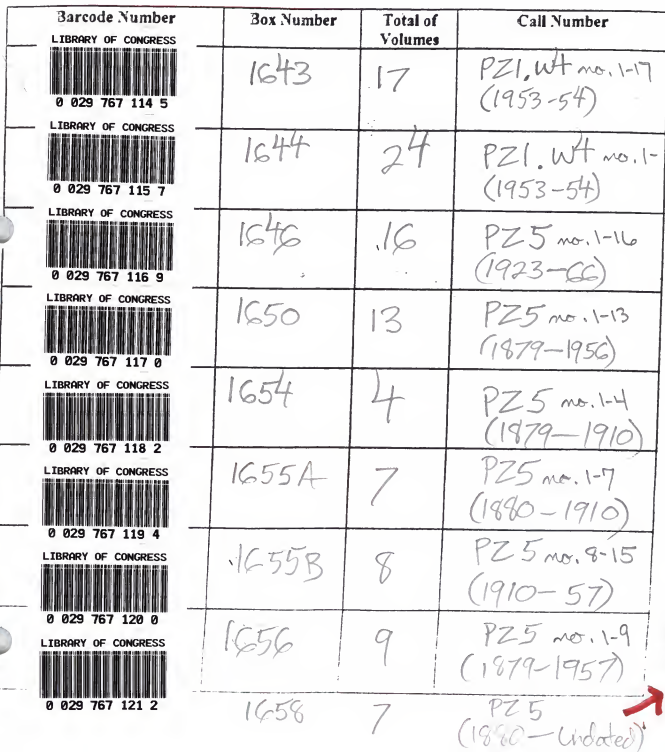 Barcode Number Box Number Total of Volumes Call Number
LIBRARY OF CONGRESS
0 029 767 114 5
1643 17 PZ1.W4 no. 1-17
(1953-54)
LIBRARY OF CONGRESS
0 029 767 115 7
1644 24 PZ1.W4 no. 1-
(1953-54)
LIBRARY OF CONGRESS
0 029 767 116 9
1646 16 PZ5 no. 1-16
(1923-66)
LIBRARY OF CONGRESS
0 029 767 117 0
1650 13 PZ5 no. 1-13
(1879-1956)
LIBRARY OF CONGRESS
0 029 767 118 2
1654 4 PZ5 no. 1-4
(1879-1910)
LIBRARY OF CONGRESS
0 029 767 119 4
1655A 7 PZ5 no. 1-7
(1880-1910)
LIBRARY OF CONGRESS
0 029 767 120 0
1655B 8 PZ5 no. 8-15
(1910-57)
LIBRARY OF CONGRESS
0 029 767 121 2
1656 9 PZ5 no. 1-9
(1879-1957)
1658 7 PZ5
(1880-Undated)